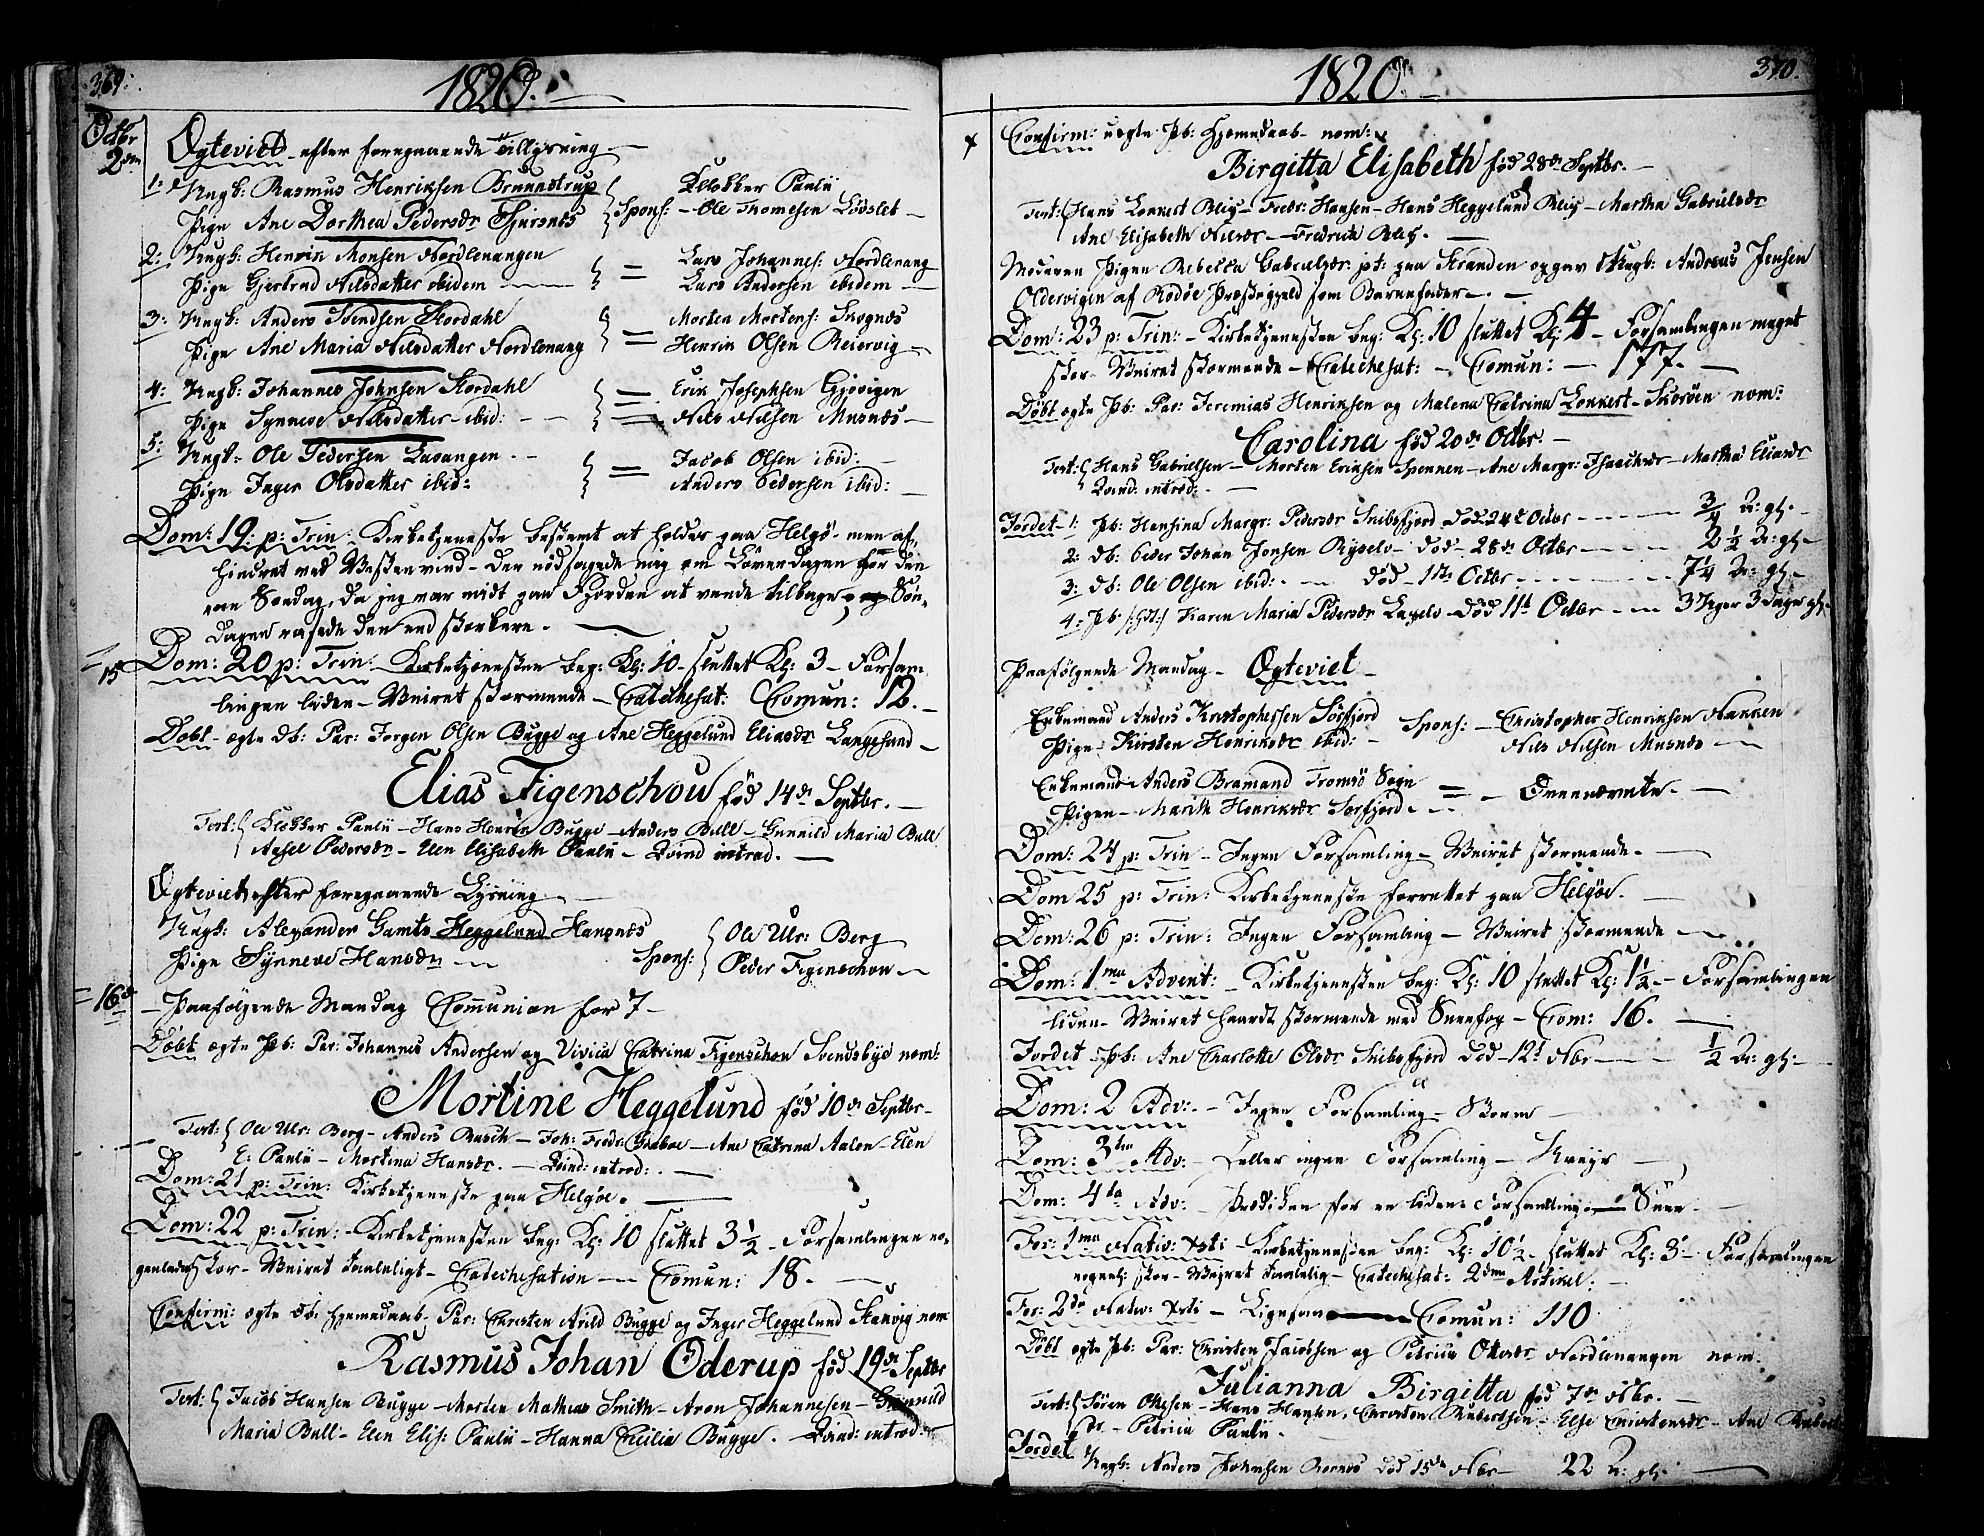 369.
1820.
Octbr
2den
Ægteviet efter foregaaende Tillysning
1: Ungk: Rasmus Henriksen Brunnstrup
Pige Ane Dorthea Pedersdr Sjursnes
Spons:
Klokker Paulii
Ole Thomesen
2: Ungk: Henrik Monsen Nordlenangen
Pige Gjertrud Nilsdatter ibidem
Lars Johannes: Nordlenang
Lars Andersen ibidem
3: Ungk: Anders Svendsen Stordahl
Pige Ane Maria Nilsdatter Nordlenang
Morten Mortens:
Henrik Olsen Reiervig
4: Ungk: Johannes Johnsen Stordahl
Pige Synneve Nilsdatter ibid:
Erik Josephsen Gjøvigen
Nils Nilsen Musnæs
5: Ungk: Ole Pedersen Qvavangen
Pige Inger Olsdatter ibid:
Jacob Olsen ibid:
Anders Pedersen ibid:
Dom: 19 p: Trin: Kirketjeneste bestemt at holdes paa Helgø men af-
hindret ved Vestenvind - Den nødsagede mig om Løverdagen før den-
ne Søndag, da jeg var midt paa Fjorden at vende tilbage, Søn-
dagen rasede den end stærkere.
15 Dom: 20 p: Trin: Kirketjenesten beg: Kl: 10 sluttet Kl: 3 - Forsam
lingen liden - Veiret stormende - Catechesat: Comun: 12.
Døbt ægte Db: Par: Jørgen Olsen Bugge og Ane Heggelund Eliasdr Langesund
Elias Figenschou fød 14de Septbr.
Test: Klokker Paulii - Hans Henrik Bugge - Anders Bull - Gunnild Maria Bull
Axsel Pedersdr - Elen Elisabeth Paulii - Qvind introd.
Ægteviet efter foregaaende Lysning
Ungk: Alexander Gamst Heggelund Hansnes
Pige Synneve Hansdr
Spons:
Ole Ulr: Berg
Peder Figenschou
16de Paafølgende Mandag Comunion for 7
Døbt ægte Pb: Par: Johannes Andersen og Vivica Catrina Figenschou Svendsbye nom:
Mortine Heggelund fød 10de Septbr
Test: Ole Ulr: Berg - Anders Rasch - Joh: Fredr: Graboe - Ane Catrina Aalen - Elen
E: Paulii - Mortina Hansdr. - Qvind: introd:
Dom: 21 p: Trin: Kirketjeneste paa Helgøe.
Dom: 22 p: Trin: Kirketjenesten beg: Kl: 10 sluttet 3 1/2 - Forsamlingen no-
genledes stor - Veiret taaleligt - Catechesation - Comun: 18.
Confirm: ægte Db: hjemedaab Par: Christen Arild Bugge og Inger Heggelund Stanvig nom
Rasmus Johan Oderup fød 19de Septbr
Test: Jacob Hansen Bugge - Morten Mathias Smith - Aron Johannesen - Gunnild
Maria Bull - Elen Elis: Paulii - Hanna Cicilia Bugge. Qvind: introd:
370.
1820.
Confirm: uægte Pb: Hjemedaab nom:
Birgitta Elisabeth fød 28de Septbr.
Test: Hans Lonkert Bleig - Fredr: Hansen - Hans Heggelund Bleig - Martha Gabrielsdr
Ane Elisabeth Nilsdr - Fredrica Bleig.
Moderen Pigen Rebecca Gabrielsdr pt: paa Stranden opgav Ungk: Andreas Jensen
Oldervigen af Rødøe Præstegjeld som Barnefader.
Dom: 23 p: Trin: Kirketjenesten beg: Kl: 10 sluttet Kl: 4 - Forsamlingen meget
stor - Veiret stormende - Catechesat: - Comun: - 177.
Døbt ægte Pb: Par: Jeremias Henriksen og Malena Catrina Lonkert - Skorøen nom:
Carolina fød 20de Octbr.
Test: Hans Gabrielsen - Morten Eriksen Spennen - Ane Margr: Isaachsdr - Martha Eliasdr
Qvind: introd:
Jordet 1: Pb: Hansina Margr: Pedersdr Skibsfjord død 24t Octbr 3/4 Ar: gl:
2: Db: Peder Johan Jonsen Ryselv død 28de Octbr 2 1/2 Ar: gl:
3: Db: Ole Olsen ibid: død 1ste Octbr 7 1/4 Ar: gl:
4: Pb: Karen Maria Pedersdr Lagelv død 11t Octbr 3 Uger 3 Dage gl:
Paafølgende Mandag - Ægteviet
Enkemand Anders Kristophersen Sørfjord
Pige Kirsten Henriksdr ibid:
Spons: Christopher Henriksen Nakken
Nils Nilsen Musnæs
Enkemand Anders Bramand Tromsø Sogn
Pigen Marith Henriksdr Sørfjord.
Ovennævnte.
Dom: 24 p: Trin - Ingen Forsamling - Veiret stormende.
Dom 25 p: Trin: Kirketjeneste forrettet paa Helgøe.
Dom: 26 p: Trin: Ingen Forsamling - Veiret stormende
Dom: 1ma Advent: - Kirketjenesten beg: Kl: 10 sluttet Kl: 1 1/2 - Forsamlingen
liden - Veiret haardt stormende med Sneefog - Com: 16.
Jordet Pb: Ane Charlotte Olsdr Skibsfjord død 12t Nbr 1/2 Ar: gl:
Dom: 2 Adv: - Ingen Forsamling - Storm
Dom: 3tia Adv: - Heller ingen Forsamling
Dom: 4ta Adv: Prædiken for en liden Forsamling - Snee
Fer: 1ma Nativ: Xsti - Kirketjenesten beg: Kl: 10 1/2 sluttet Kl: 3 - Forsamlingen
stor - Veiret taaleligt - Catechesat: 2den Artikel.
Fer: 2da Nativ: Xsti - Ligesaa Comun: 110
Døbt ægte Pb: Par: Christen Jacobsen og Petrica Ottesdr Nordlenangen nom:
Julianna Birgitta fød 7de Nbr.
Test: Søren Ottesen - Hans Hansen, Christen Rubertsen - Else Christensdr - Ane Rubert
dr - Petrica Paulii.
Jordet
Ungk: Anders Johnsen død 15de Nbr 22 Ar: gl: